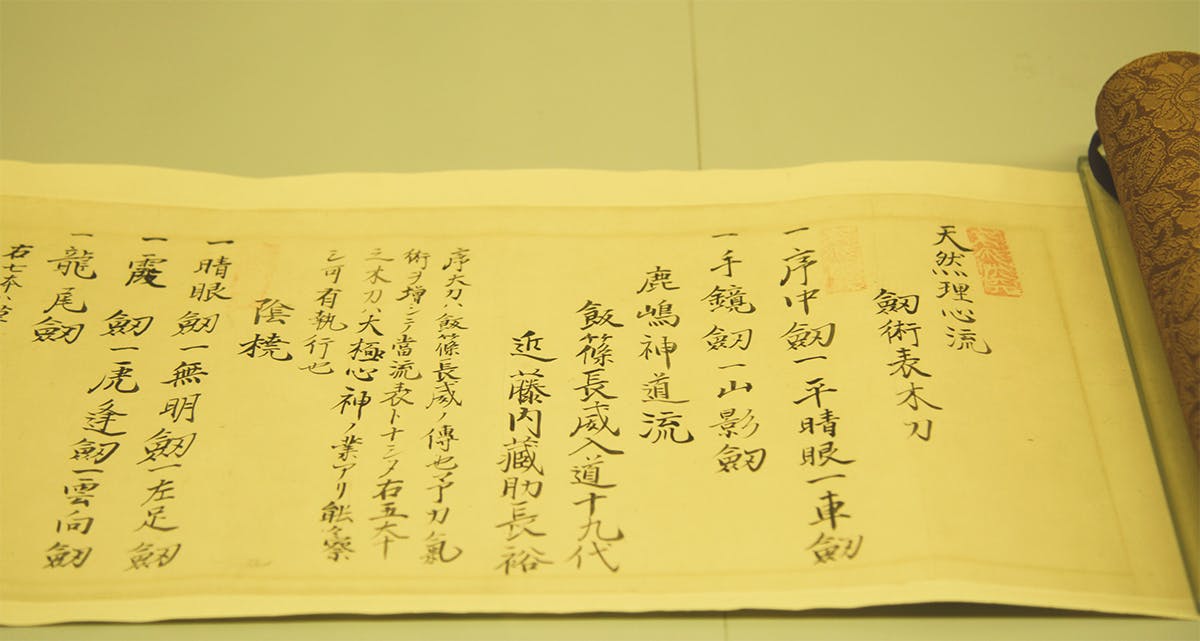 天然理心流
劔術表木刀
一序中劔一平晴眼一車劔
一手鏡劔一山影劔
鹿嶋神道流
飯篠長威入道十九代
近藤内藏助長裕
序大刀ハ飯篠長威ノ傳也予刀氣
術ヲ増シテ當流表トナシタ右五大十
三木刀ハ大極心神ノ業アリ能々察
シ可有執行也
陰橈
一晴眼劔一無明劔一左足劔
一霞劔一虎逢劔一雲向劔
一龍尾劔
右七本ハ